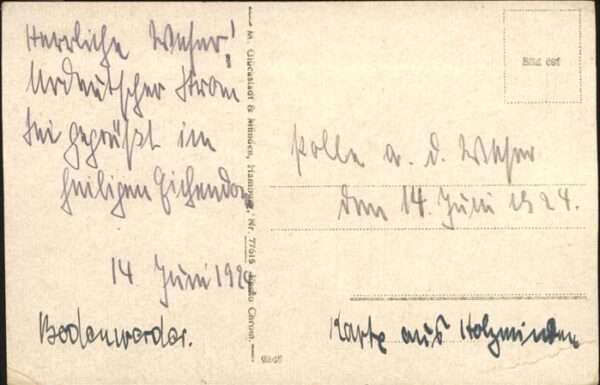 Herrliche Weser!
Urdeutscher Strom
Sei gegrüßt im
heiligen Eichendom
14 Juni 1924
Bodenwerder.
M. Glückstadt & Münden, Hamburg. Nr. 77615
Polle a. d. Weser
den 14. Juni 1924.
Karte aus Holzminden